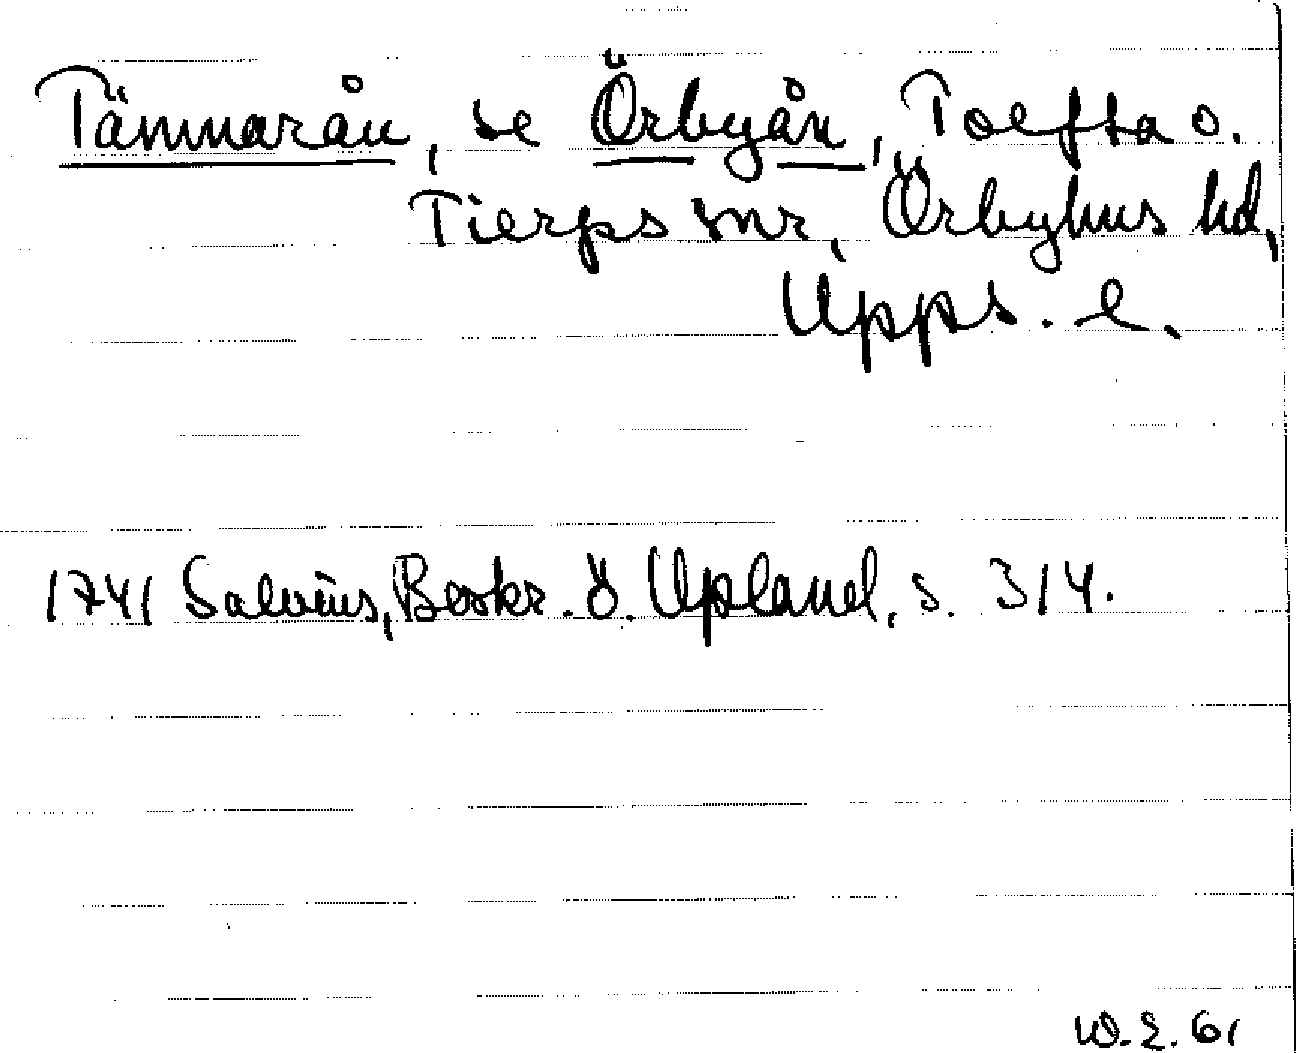 Tämnarån, se Örbyån, Tolfta o.
Tierps snr, Örbyhus hd,
Upps. l.
1741 Salvius, Beskr. ö. Upland, s. 314.
W.E. 61